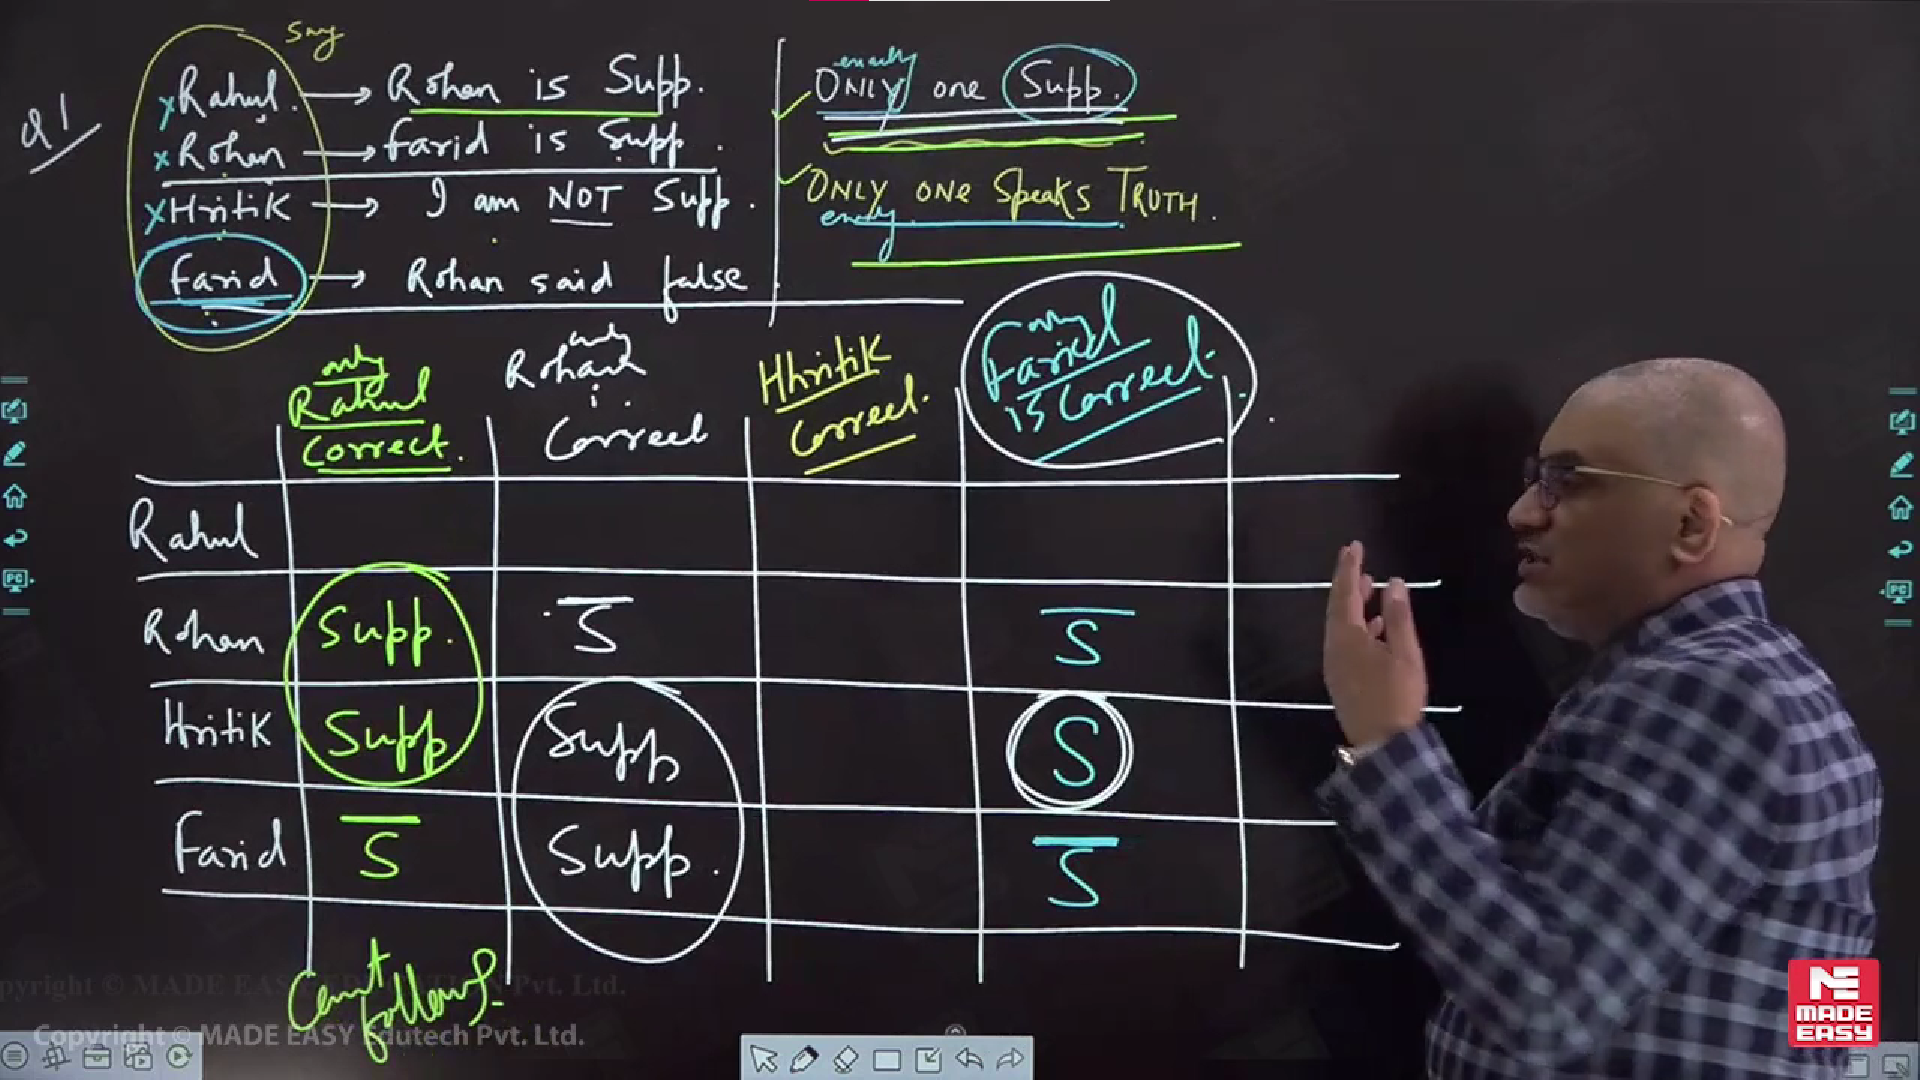 Say
Q1
x Rahul. → Rohan is Supp.
x Rohan → Farid is Supp.
x Hritik → I am NOT Supp.
Farid → Rohan said false
exactly
ONLY one Supp.
ONLY ONE Speaks TRUTH.
only
Rahul
Correct.
only
Rohan
Correct
Hhritik
Correct.
only
Farid
is Correct.
Rahul
Rohan Supp. S̅ S̅
Hritik Supp Supp S
Farid S̅ Supp. S̅
Can't
follow
pyright © MADE EASY EDUCATION Pvt. Ltd.
Copyright © MADE EASY Edutech Pvt. Ltd.
PC
PC
ME
MADE
EASY